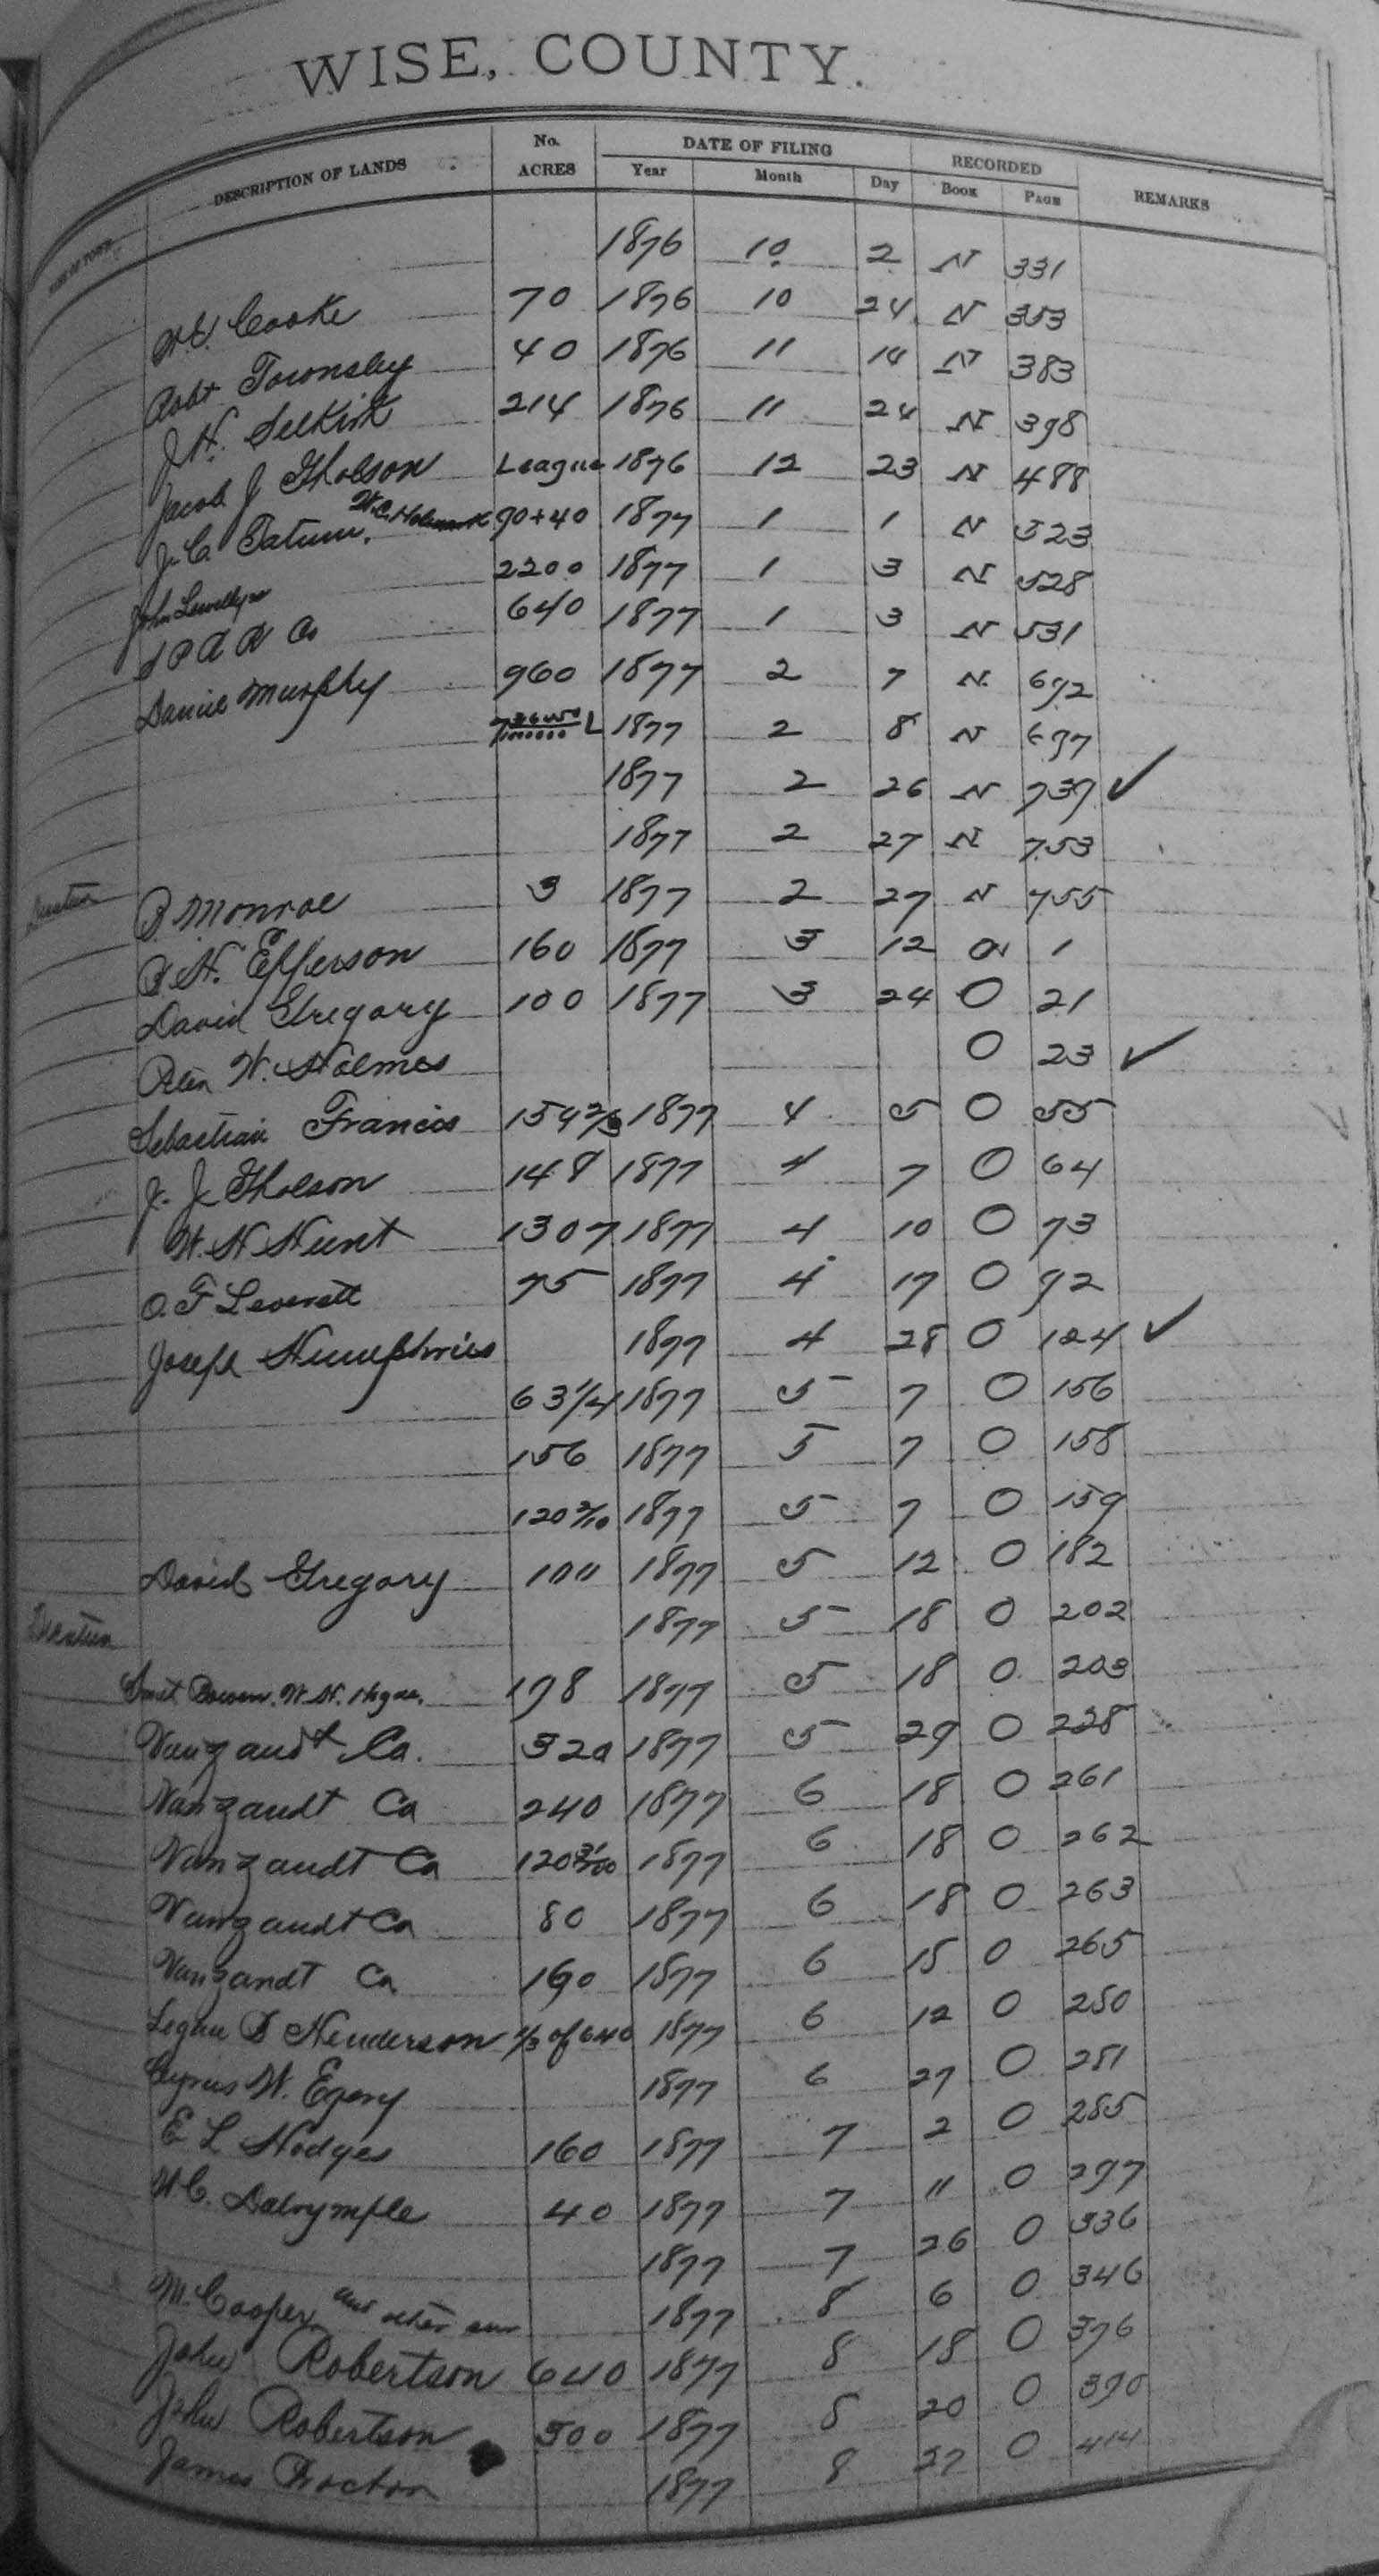 WISE, COUNTY.
DESCRIPTION OF LANDS No. ACRES DATE OF FILING RECORDED REMARKS
Year Month Day Book Page
1876 10 2 N 331
Cooke 70 1876 10 24 N 353
Robt Townsley 40 1876 11 14 N 383
J. H. Selkirk 214 1876 11 24 N 398
Jacob J Gholson League 1876 12 23 N 488
J. C. Tatum, W.C. 90+40 1877 1 1 N 523
John Lewellyn 2200 1877 1 3 N 528
Co 640 1877 1 3 N 531
Daniel Murphy 960 1877 2 7 N. 692
L 1877 2 8 N 697
1877 2 26 N 739 ✓
1877 2 27 N 753
B. Monroe 3 1877 2 27 N 755
H. Epperson 160 1877 3 12 1
David Gregory 100 1877 3 24 O 21
W. Holmes O 23 ✓
Sebastian Francis 154 2/3 1877 4 5 O 55
J. J. Gholson 148 1877 4 7 O 64
W. H Hunt 1307 1877 4 10 O 73
O. F Leverett 75 1877 4 17 O 92
Joseph Humphries 1877 4 28 O 124 ✓
63 1/4 1877 5 7 O 156
156 1877 5 7 O 158
120 1877 5 7 O 159
David Gregory 100 1877 5 12 O 182
1877 5 18 O 202
Bowen. W. H. 198 1877 5 18 O 203
Vanzandt Co. 320 1877 5 29 O 228
Vanzandt Co 240 1877 6 18 O 261
Vanzandt Co 120 1877 6 18 O 262
Vanzandt Co 80 1877 6 18 O 263
Vanzandt Co 160 1877 6 15 O 265
Henderson 1/3 of 640 1877 6 12 O 280
Cyrus W. Egery 1877 6 27 O 281
E L Hodges 160 1877 7 2 O 285
W C. Dalrymple 40 1877 7 11 O 297
1877 7 26 O 336
M. Cooper and other sur 1877 8 6 O 346
John Robertson 640 1877 8 18 O 376
John Robertson 500 1877 8 20 O 390
James Proctor 1877 8 27 O 414